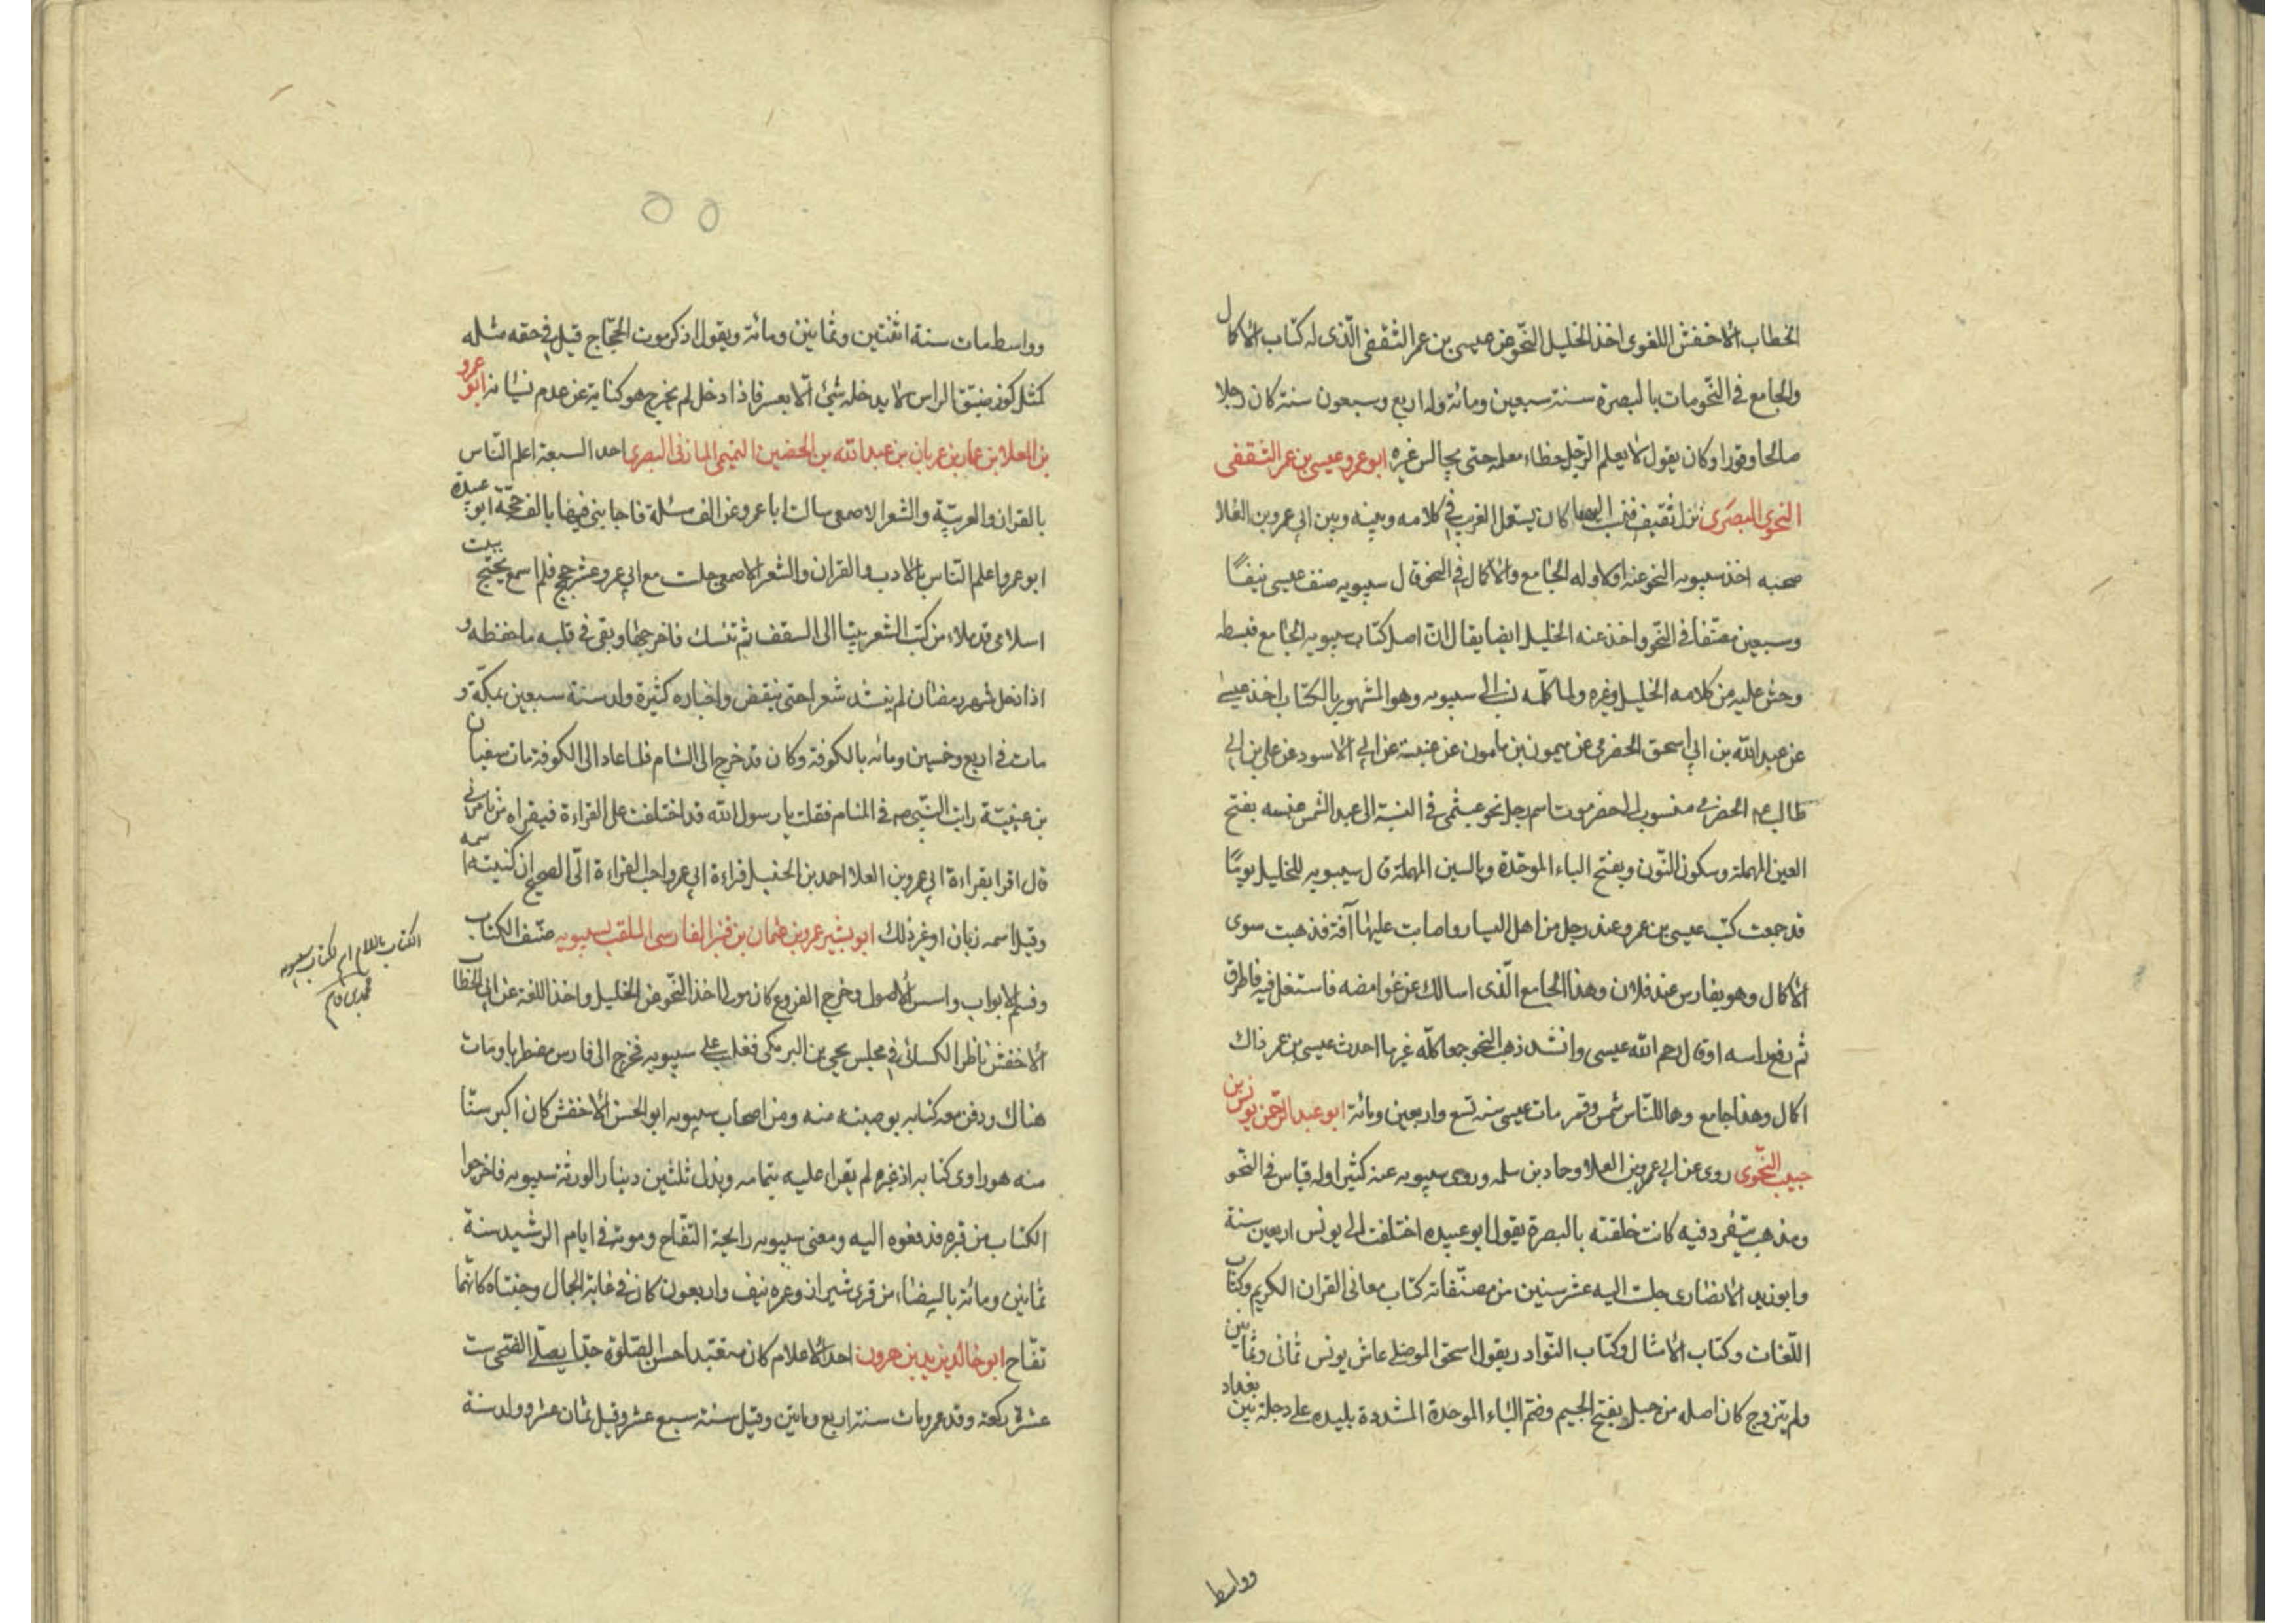 الخطاب الاخفش اللغوى اخذ الخليل النحو عن عيسى بن عمر الثقفى الّذى له كتاب الاكمال
والجامع فى النّحو مات بالبصرة سنة سبعين ومائة وله اربع وسبعون سنة كان رجلا
صالحا وقورا وكان يقول لا يعلم الرّجل خطاء معلمه حتى يجالس غيره ابو عمرو عيسى بن عمر الثقفى
النحوى البصرى نزل ثقيف فنسب اليها كان يستعمل الغريب فى كلامه وبينه وبين ابى عمرو بن العلا
صحبه اخذ سيبويه النحو عنه اولا وله الجامع والاكمال فى النحو قال سيبويه صنف عيسى نيفًا
وسبعين مصنّفا فى النّحو واخذ عنه الخليل ايضا يقال انّ اصل كتاب سيبويه الجامع فبسطه
وحشى عليه من كلامه الخليل وغيره ولما كمّله نسب الى سيبويه وهو المشهور بالكتاب اخذ عيسى
عن عبد الله بن ابى اسحق الحضرمى عن ميمون بن مامون عن عنبسة عن ابى الاسود عن على بن ابى
طالب عم الحضرمى منسوب الى حضرموت اسم رجل نحو عبشمى فى النسبة الى عبد الشمس عنبسه بفتح
العين المهملة وسكون النّون وبفتح الباء الموحّدة وبالسين المهملة قال سيبويه للخليل يومًا
قد جمعت كتب عيسى بن عمرو عند رجل من اهل اليسار واصابت عليها آفة فذهبت سوى
الاكمال وهو بفارس عند فلان وهذا الجامع الّذى اسالك عن غوامضه فاستغل فيه فاطرق
ثم رفع راسه او قال رحم الله عيسى وانشد ذهب النحو جمعا كلّه غير ما احدث عيسى بن عمر ذاك
اكمال وهذا جامع وهما للنّاس شمس وقمر مات عيسى سنه تسع واربعين ومائة ابو عبد الرّحمن يونس بن
حبيب النّحوى روى عن ابى عمرو بن العلا وحماد بن سلمه وروى سيبويه عنه كثيرا وله قياس فى النّحو
ومذهب يتفرد فيه كانت حلقته بالبصرة يقول ابو عبيده اختلفت الى يونس اربعين سنة
وابو زيد الانصارى جلست اليه عشر سنين من مصنّفاته كتاب معانى القران الكريم وكتاب
اللّغات وكتاب الامثال وكتاب النّوادر يقول اسحق الموصلى عاش يونس ثمانى وثمانين
ولم يتزوج كان اصله من جبل بفتح الجيم وضم الباء الموحدة المشددة بليده على دجلة بين بغداد
وواسط
وواسط مات سنة اثنتين وثمانين ومائة ويقول اذكر موت الحجّاج قيل فى حقه مثله
كمثل كوز ضيّق الراس لا يدخله شئ الّا بعسر فاذا دخل لم يخرج هو كناية عن عدم نسيانه ابو عمرو
بن العلا بن عمار بن عريان بن عبد الله بن الحضين التميمى المازنى البصرى احد السبعة اعلم النّاس
بالقران والعربيّة والشعر الاصمعى سالت ابا عمرو عن الف مسئلة فاجابنى فيها بالف حجّة ابو عبيدة
ابو عمرو اعلم النّاس بالادب والقران والشعر الاصمعى جلست مع ابى عمرو عشر حجج فلم اسمع يحتج ببيت
اسلامى قد ملاء من كتب الشعر بيتا الى السقف ثم تنسك فاخرجها وبقى فى قلبه ما حفظه و
اذا دخل شهر رمضان لم ينشد شعرا حتى ينقض واخباره كثيرة ولد سنة سبعين بمكّة و
مات فى اربع وخمسين ومائه بالكوفة وكان قد خرج الى الشام فلما عاد الى الكوفة مات سفيان
بن عيينة رايت النّبى صم فى المنام فقلت يا رسول الله قد اختلفت على القراءة فبقراءه من تامرنى
قال اقرا بقراءة ابى عمرو بن العلا احمد بن الحنبل قراءة ابى عمرو احب القراءة الّى الصحيح ان كنيته اسمه
وقيل اسمه زبان او غير ذلك ابو بشير عمرو بن عثمان بن قنبر الفارسى الملقب بسيبويه صنّف الكتاب
وقسم الابواب واسس الاصول وخرج الفروع كان مولى اخذ النّحو عن الخليل واخذ اللغة عن ابى الخطاب
الاخفش ناظر الكسائى فى مجلس يحيى بن البرمكى فغلب على سيبويه فخرج الى فارس مضطربا ومات
هناك ودفن معه كتابه بوصيته منه ومن اصحاب سيبويه ابو الحسن الاخفش كان اكبر سنّا
منه هو راوى كتابه اذ غيره لم يقراء عليه بتمامه وبذل ثلثين دينار الورثة سيبويه فاخرجوا
الكتاب من قبره فدفعوه اليه ومعنى سيبويه رايحة التفّاح وموته فى ايام الرشيد سنة
ثمانين ومائة بالبيضاء من قرى شيراز وعمره نيف واربعون كان فى غاية الجمال وجنتاه كانّهما
تفّاح ابو خالد يزيد بن هرون احد الاعلام كان متعبدا حسن الصلوة جدا يصلّى الضحى ست
عشرة ركعة وقد عمر ومات سنة اربع وماتين وقيل سنة سبع عشر وقيل ثمان عشر وولد سنة
الكتاب باللام اسم لكتاب سيبويه